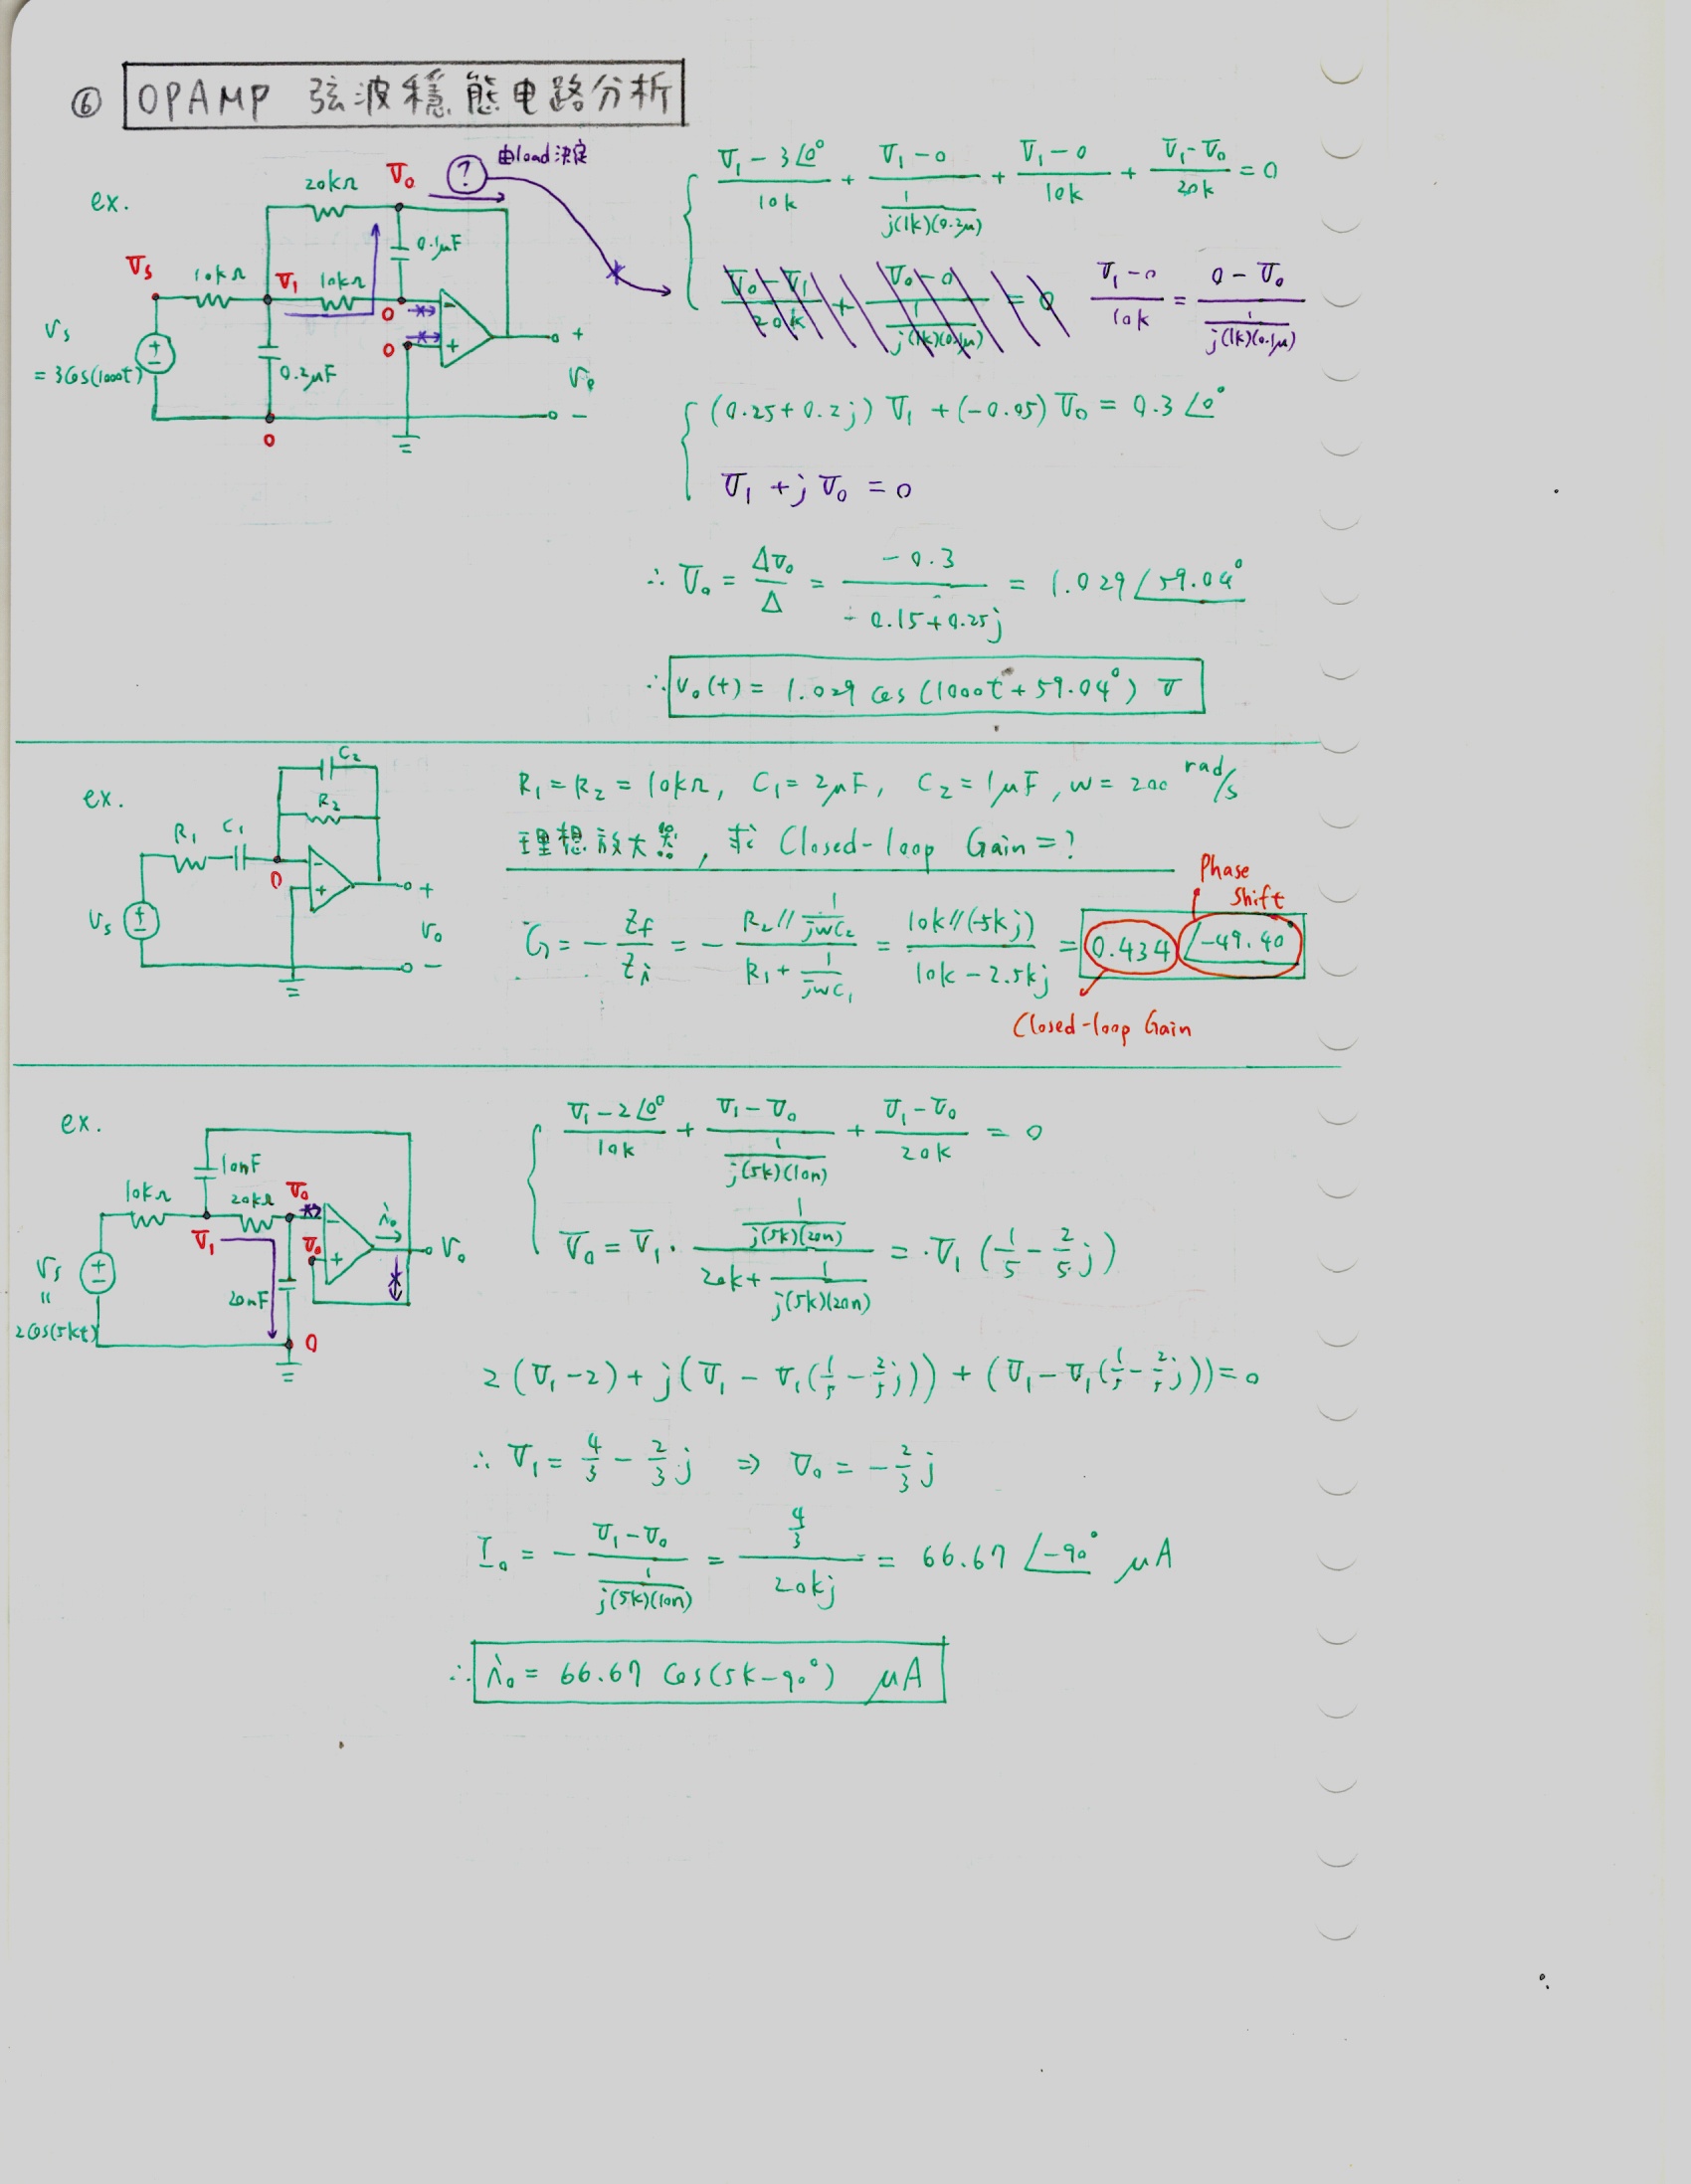 ⑥ OPAMP 弦波穩態电路分析
ex.
20kΩ
V₀
? 由load決定
0.1μF
Vs
10kΩ
V₁
10kΩ
0
0
vs
= 3cos(1000t)
0.2μF
0
+
v₀
-
(V₁ - 3∠0°)/10k + (V₁ - 0)/(1/(j(1k)(0.2μ))) + (V₁ - 0)/10k + (V₁ - V₀)/20k = 0
(V₀ - V₁)/20k + (V₀ - 0)/(1/(j(1k)(0.1μ))) = 0
(V₁ - 0)/10k = (0 - V₀)/(1/(j(1k)(0.1μ)))
(0.25 + 0.2j) V₁ + (-0.05) V₀ = 0.3∠0°
V₁ + j V₀ = 0
∴ V₀ = ΔV₀/Δ = -0.3/(-0.15 + 0.25j) = 1.029∠59.04°
∴ v₀(t) = 1.029 cos(1000t + 59.04°) V
ex.
C₂
R₂
R₁ C₁
0
Vs
+
V₀
-
R₁ = R₂ = 10kΩ, C₁ = 2μF, C₂ = 1μF, w = 200 rad/s
理想放大器, 求 Closed-loop Gain = ?
G = - Zf/Zi = - (R₂ // 1/(jwC₂))/(R₁ + 1/(jwC₁)) = (10k // (-5kj))/(10k - 2.5kj) = 0.434 ∠-49.40°
Phase Shift
Closed-loop Gain
ex.
10nF
10kΩ
20kΩ
V₀
i₀
V₁
V₀
V₀
Vs
"
2cos(5kt)
20nF
0
(V₁ - 2∠0°)/10k + (V₁ - V₀)/(1/(j(5k)(10n))) + (V₁ - V₀)/20k = 0
V₀ = V₁ · (1/(j(5k)(20n)))/(20k + 1/(j(5k)(20n))) = · V₁ (1/5 - 2/5 j)
2(V₁ - 2) + j(V₁ - V₁(1/5 - 2/5 j)) + (V₁ - V₁(1/5 - 2/5 j)) = 0
∴ V₁ = 4/3 - 2/3 j ⇒ V₀ = - 2/3 j
I₀ = - (V₁ - V₀)/(1/(j(5k)(10n))) = (4/3)/(20kj) = 66.67 ∠-90° μA
∴ i₀ = 66.67 cos(5k - 90°) μA